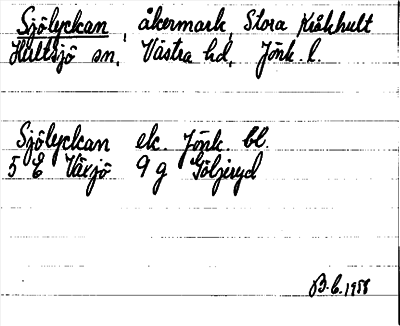 Sjölyckan, åkermark, Stora Kråkhult
Hultsjö sn, Västra hd, Jönk. l.
Sjölyckan ek. Jönk. bl.
5 E Växjö 9 g Göljeryd
B.E. 1958